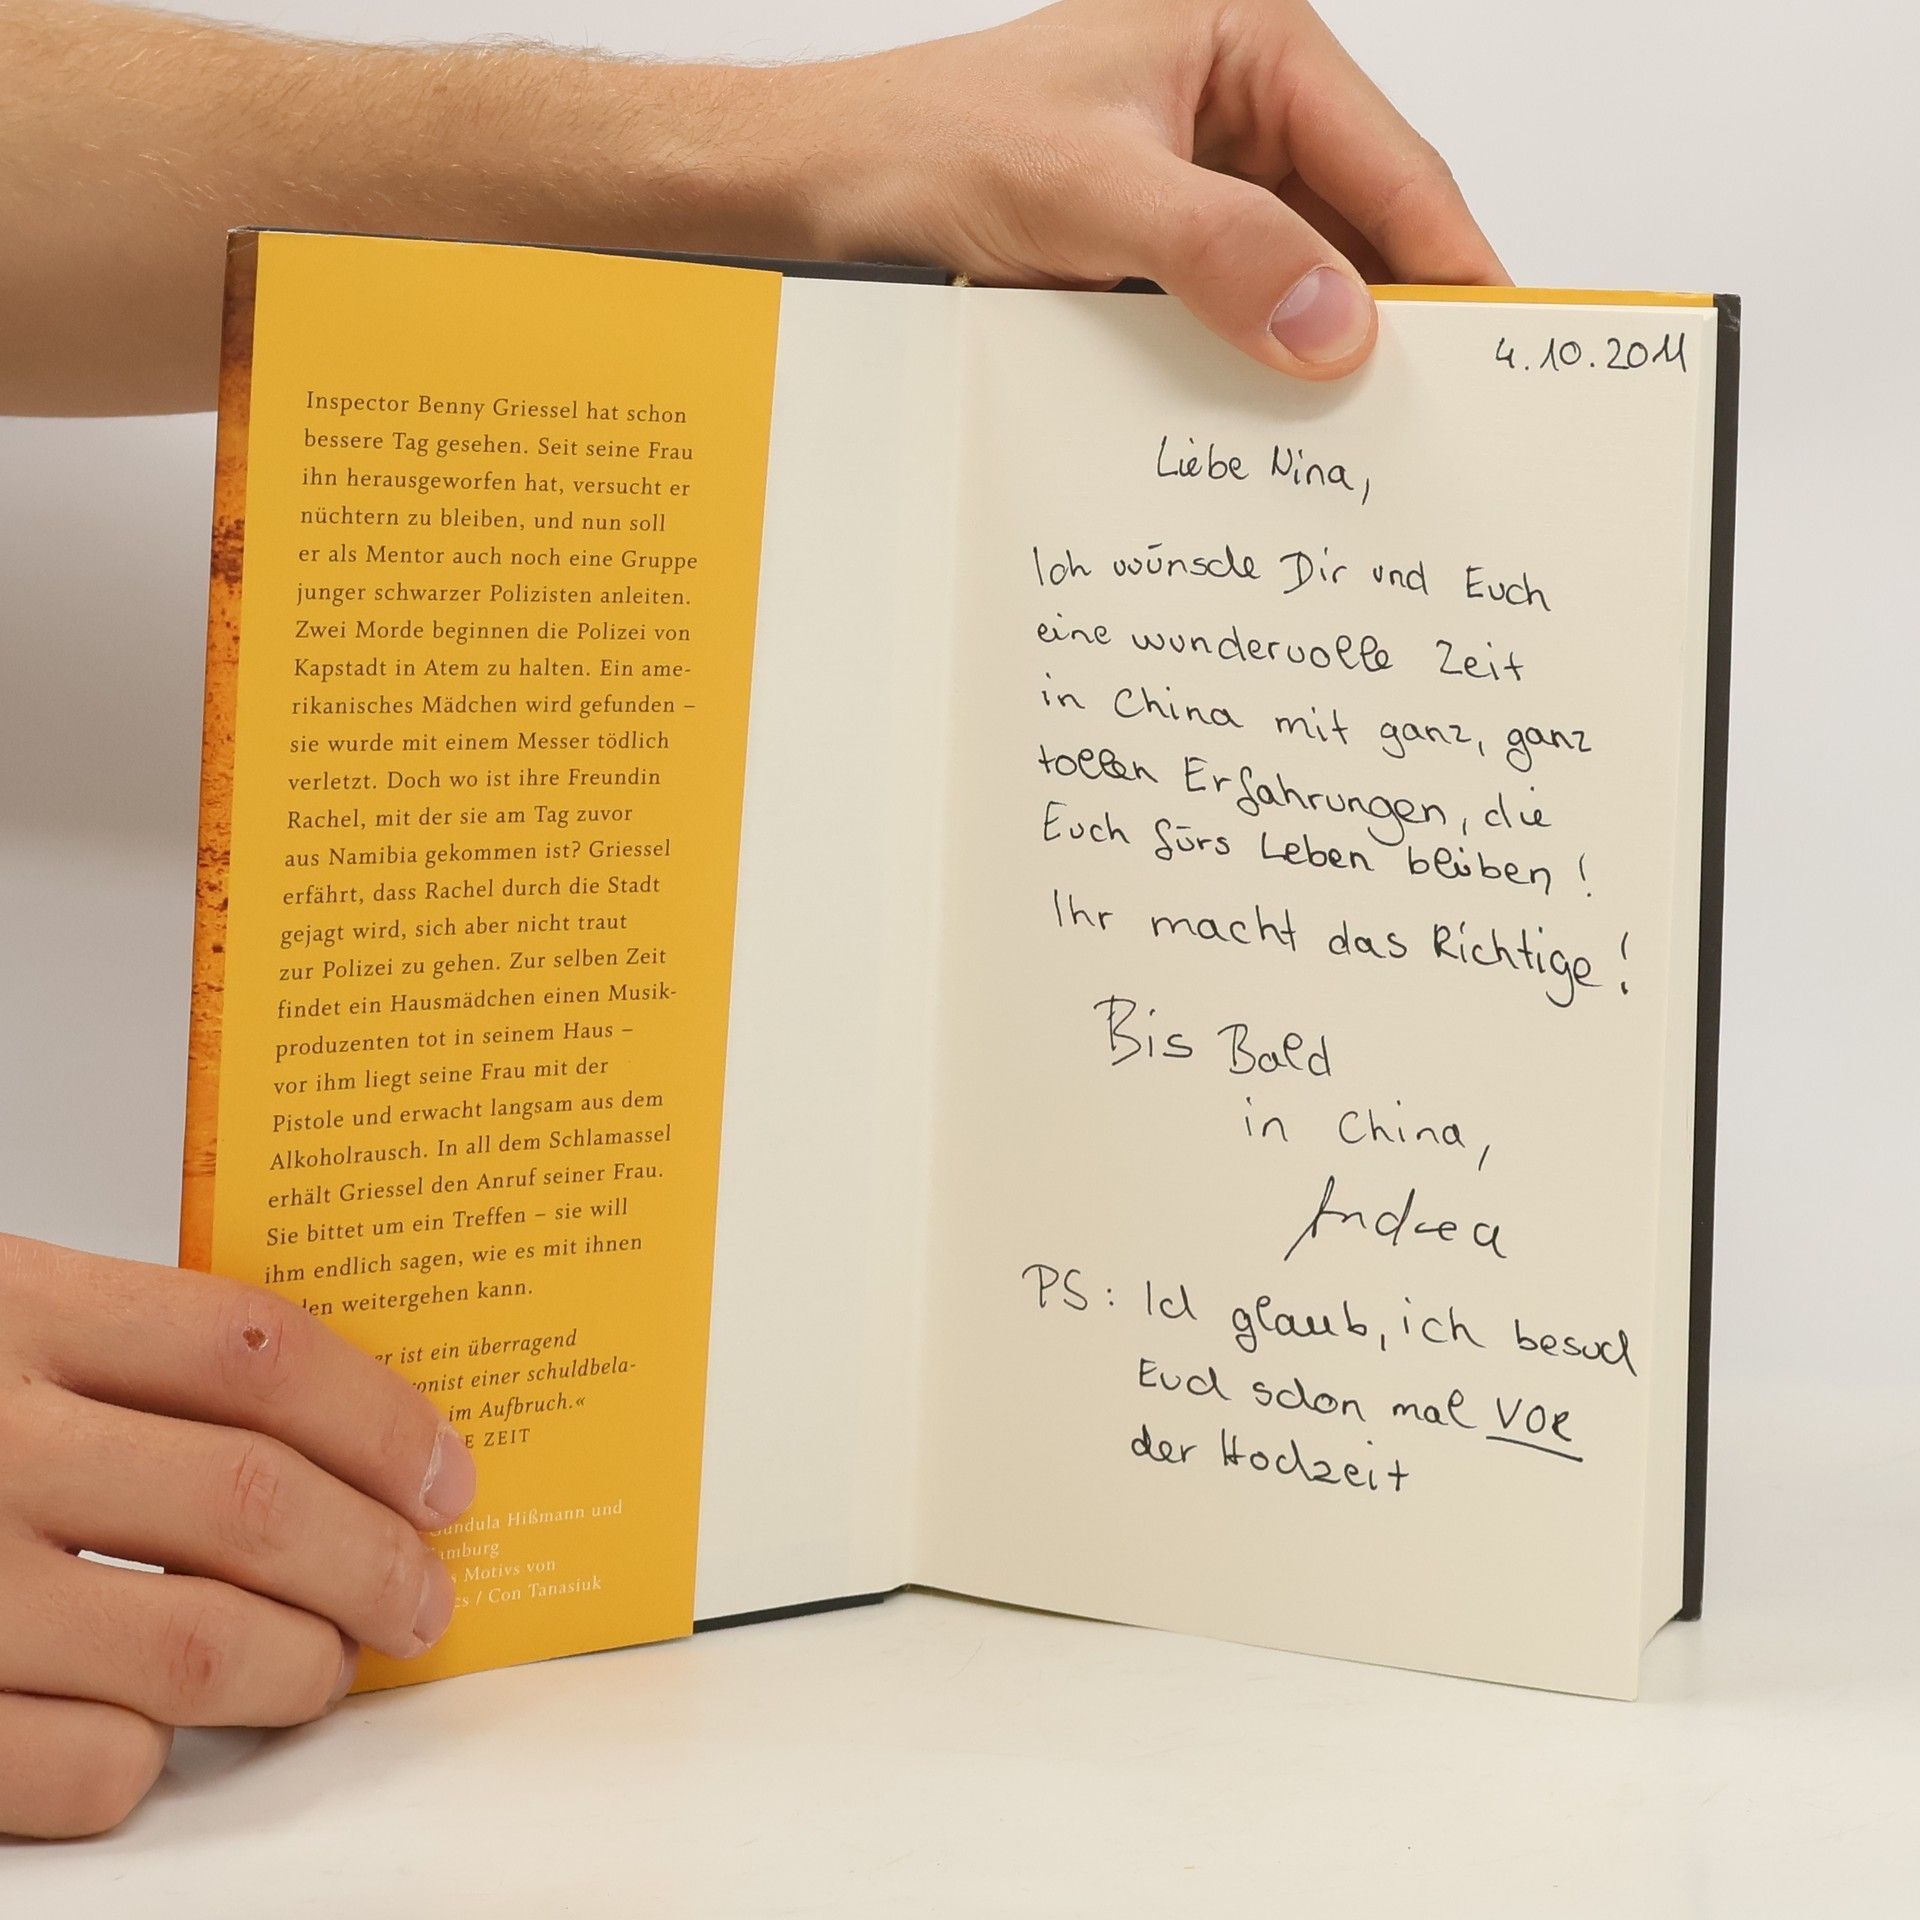 Inspector Benny Griessel hat schon
bessere Tag gesehen. Seit seine Frau
ihn herausgeworfen hat, versucht er
nüchtern zu bleiben, und nun soll
er als Mentor auch noch eine Gruppe
junger schwarzer Polizisten anleiten.
Zwei Morde beginnen die Polizei von
Kapstadt in Atem zu halten. Ein ame-
rikanisches Mädchen wird gefunden –
sie wurde mit einem Messer tödlich
verletzt. Doch wo ist ihre Freundin
Rachel, mit der sie am Tag zuvor
aus Namibia gekommen ist? Griessel
erfährt, dass Rachel durch die Stadt
gejagt wird, sich aber nicht traut
zur Polizei zu gehen. Zur selben Zeit
findet ein Hausmädchen einen Musik-
produzenten tot in seinem Haus –
vor ihm liegt seine Frau mit der
Pistole und erwacht langsam aus dem
Alkoholrausch. In all dem Schlamassel
erhält Griessel den Anruf seiner Frau.
Sie bittet um ein Treffen – sie will
ihm endlich sagen, wie es mit ihnen
weitergehen kann.
ist ein überragend
einer schuldbela-
im Aufbruch.«
ZEIT
Gundula Hißmann und
Motivs von
/ Con Tanasiuk
4.10.2011
Liebe Nina,
Ich wünsche Dir und Euch
eine wundervolle Zeit
in China mit ganz, ganz
tollen Erfahrungen, die
Euch fürs Leben bleiben!
Ihr macht das Richtige!
Bis Bald
in China,
Andrea
PS: Ich glaub, ich besuch
Euch schon mal VOR
der Hochzeit